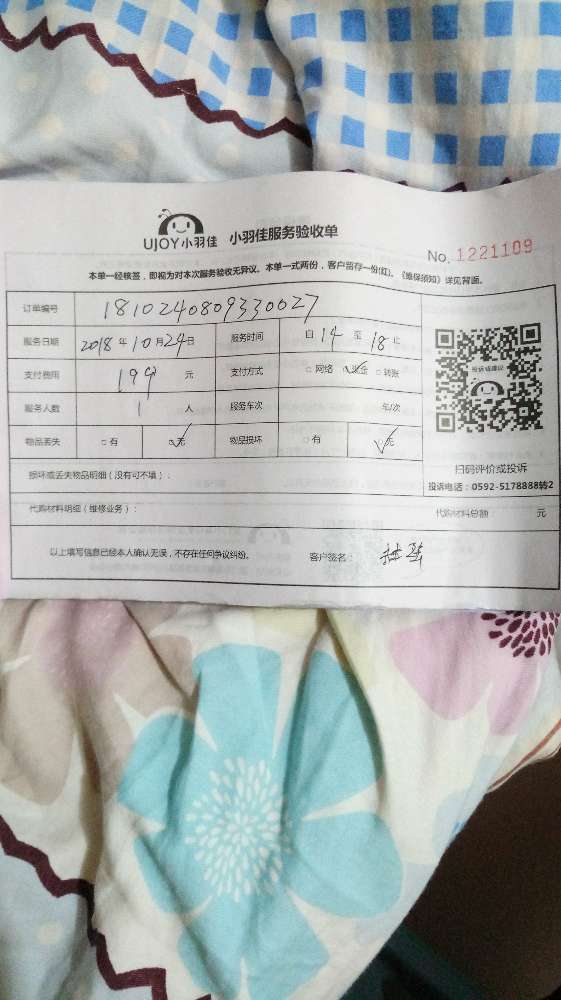 UJOY小羽佳 小羽佳服务验收单
No. 1221109
本单一经核签，即视为对本次服务验收无异议。本单一式两份，客户留存一份(红)。《维保须知》详见背面。
订单编号 1810240809330027
服务日期 2018年10月24日 服务时间 自14至18止
支付费用 199元 支付方式 □网络 ☑现金 □转账
服务人数 1人 服务车次 车/次
物品丢失 □有 ☑无 物品损坏 □有 ☑无
投诉或建议
扫码评价或投诉
投诉电话：0592-5178888转2
损坏或丢失物品明细（没有可不填）：
代购材料明细（维修业务）： 代购材料总额 元
以上填写信息已经本人确认无误，不存在任何争议纠纷。 客户签名：